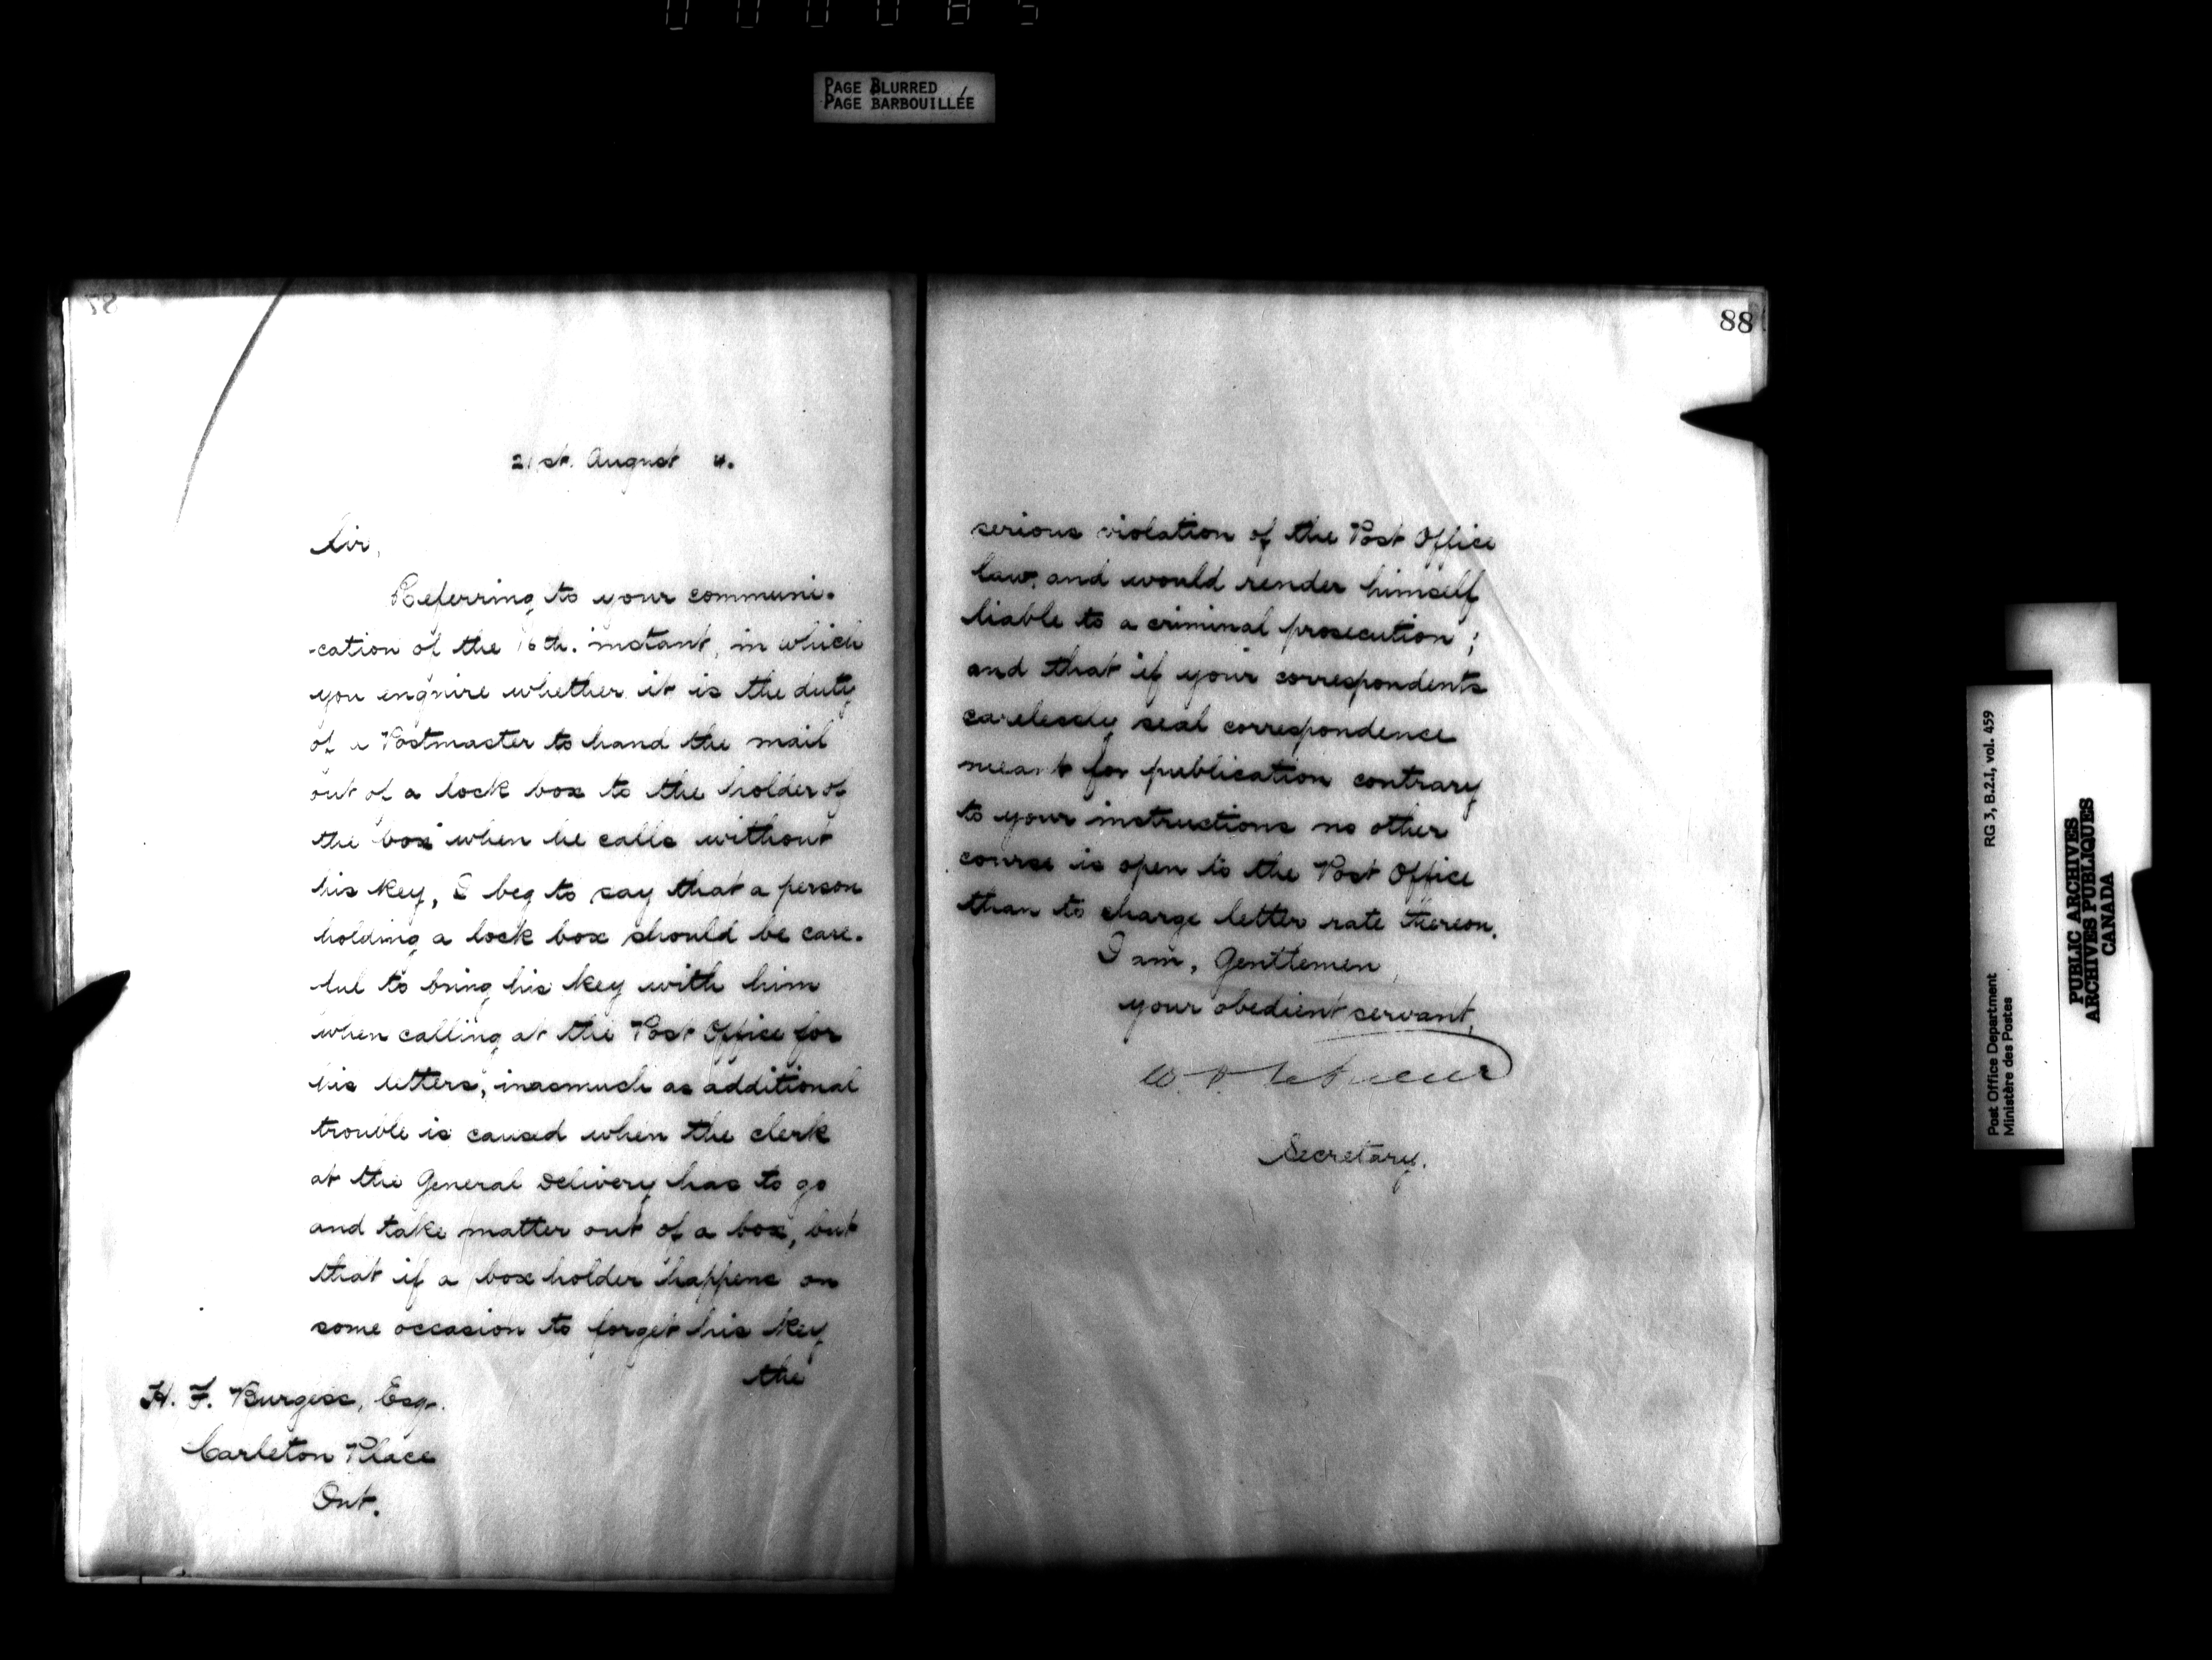 0 0 0 0 8 5
PAGE BLURRED
PAGE BARBOUILLÉE
87
21st. August 4.
Sir,
Referring to your communi-
-cation of the 16th. instant, in which
you enquire whether it is the duty
of a Postmaster to hand the mail
out of a lock box to the holder of
the box when he calls without
his key, I beg to say that a person
holding a lock box should be care-
ful to bring his key with him
when calling at the Post Office for
his letters, inasmuch as additional
trouble is caused when the clerk
at the General Delivery has to go
and take matter out of a box, but
that if a box holder happens on
some occasion to forget his key
the
H. F. Burgess, Esq.
Carleton Place
Ont.
88
serious violation of the Post Office
law, and would render himself
liable to a criminal prosecution;
and that if your correspondents
carelessly seal correspondence
meant for publication contrary
to your instructions no other
course is open to the Post Office
than to charge letter rate thereon.
I am, Gentlemen,
your obedient servant,
W. D. LeSueur
Secretary.
Post Office Department RG 3, B.2.1, vol. 459
Ministère des Postes
PUBLIC ARCHIVES
ARCHIVES PUBLIQUES
CANADA